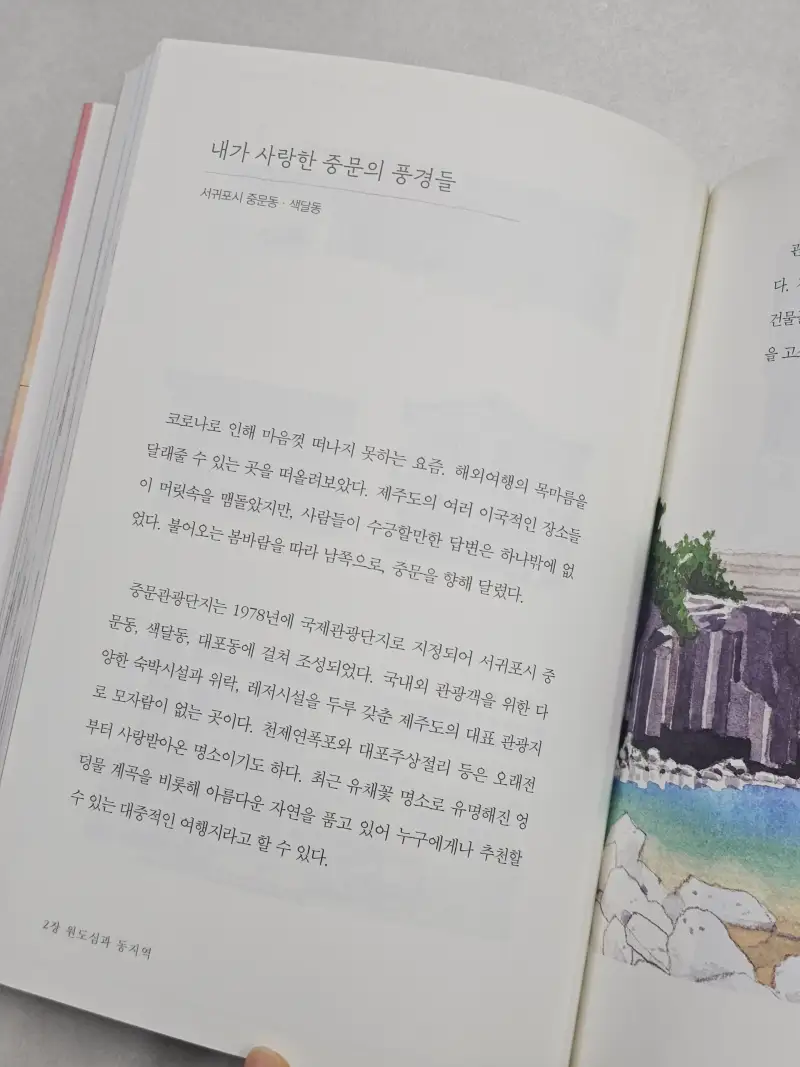 내가 사랑한 중문의 풍경들
서귀포시 중문동 · 색달동
코로나로 인해 마음껏 떠나지 못하는 요즘. 해외여행의 목마름을
달래줄 수 있는 곳을 떠올려보았다. 제주도의 여러 이국적인 장소들
이 머릿속을 맴돌았지만, 사람들이 수긍할만한 답변은 하나밖에 없
었다. 불어오는 봄바람을 따라 남쪽으로, 중문을 향해 달렸다.
중문관광단지는 1978년에 국제관광단지로 지정되어 서귀포시 중
문동, 색달동, 대포동에 걸쳐 조성되었다. 국내외 관광객을 위한 다
양한 숙박시설과 위락, 레저시설을 두루 갖춘 제주도의 대표 관광지
로 모자람이 없는 곳이다. 천제연폭포와 대포주상절리 등은 오래전
부터 사랑받아온 명소이기도 하다. 최근 유채꽃 명소로 유명해진 엉
덩물 계곡을 비롯해 아름다운 자연을 품고 있어 누구에게나 추천할
수 있는 대중적인 여행지라고 할 수 있다.
2장 원도심과 동지역
다.
건물
을 고